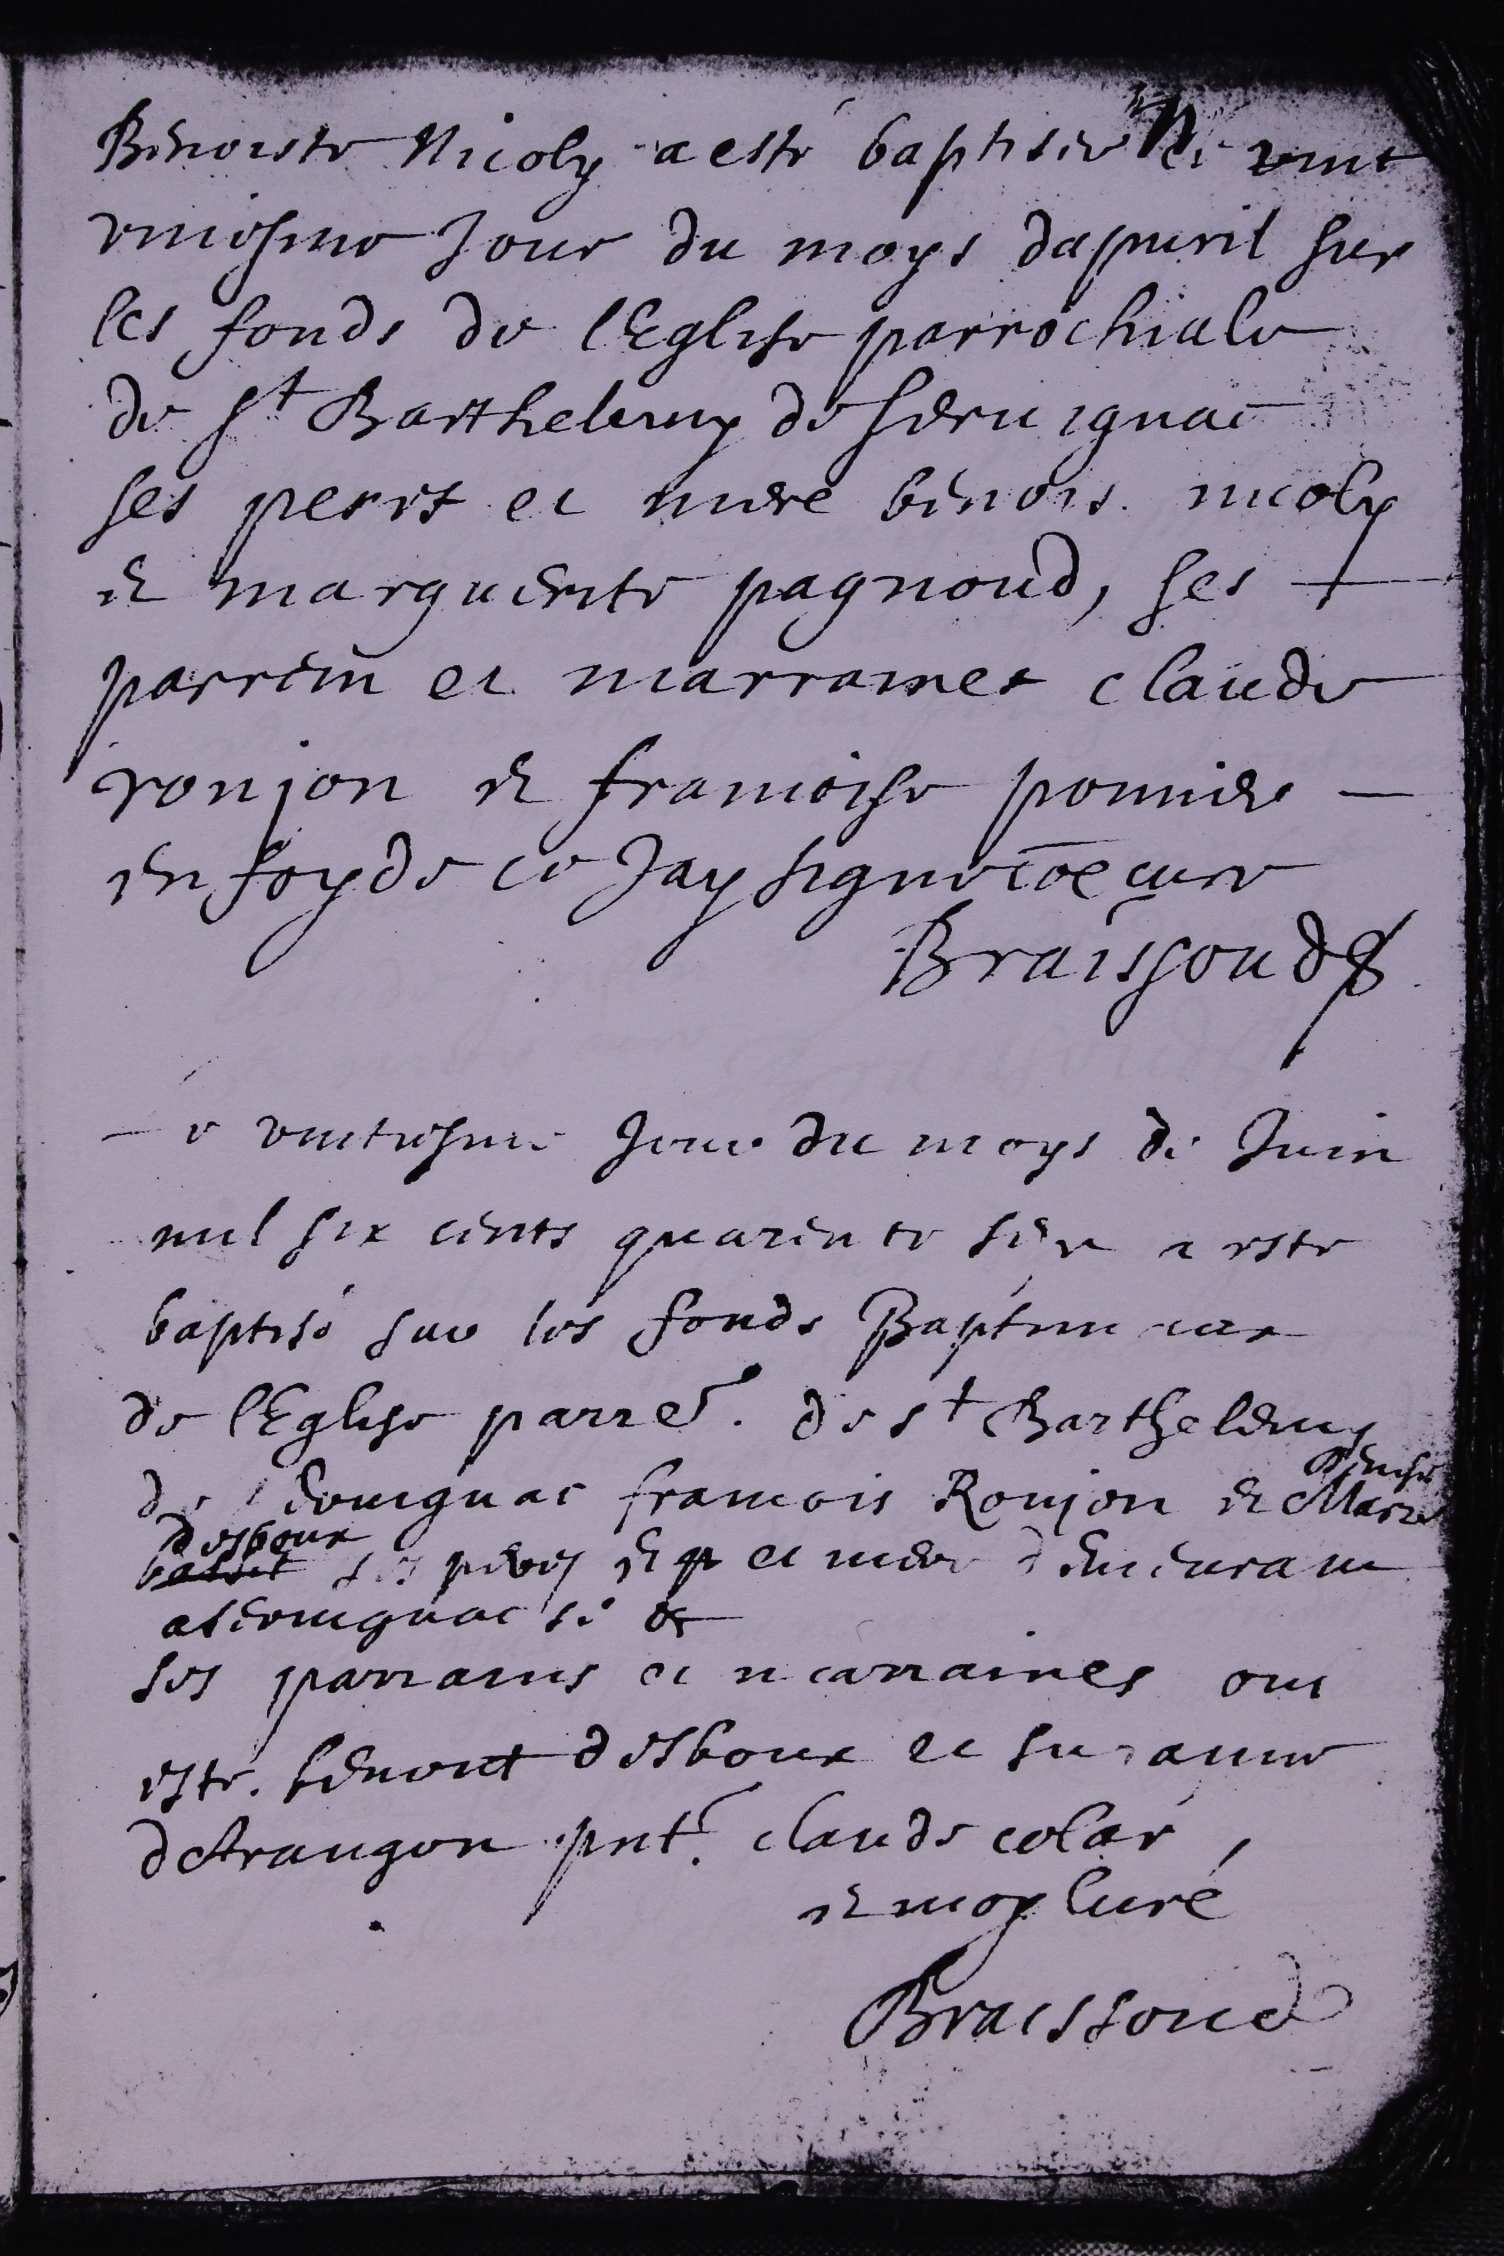 Benoiste Nicoly a esté baptisée le vint
vniesme Jour du moys dapuril sur
les fonds de lEglise parrochiale
de St Barthelemy de seruignac
ses peres et mere benois nicoly
et marguerite pagnoud, ses
parrein et marraines claude
ronjon et francoise ponnier
en foy de ce Jay signé cōe curé
Braissoud
e vintiesme Jour du moys de Juin
mil six cents quarente six a esté
baptisé sur les fonds Baptimaux
de lEglise parre. de st Barthelemy
de seruignac francois Ronjon et Marie
desboux
bassit ses peres et p et mere demeurant
a seruignac
ses parrains et marraines ont
esté. benoit desboux et suzanne
detrangon pnt. claude colar,
et moy Curé
Braissoud